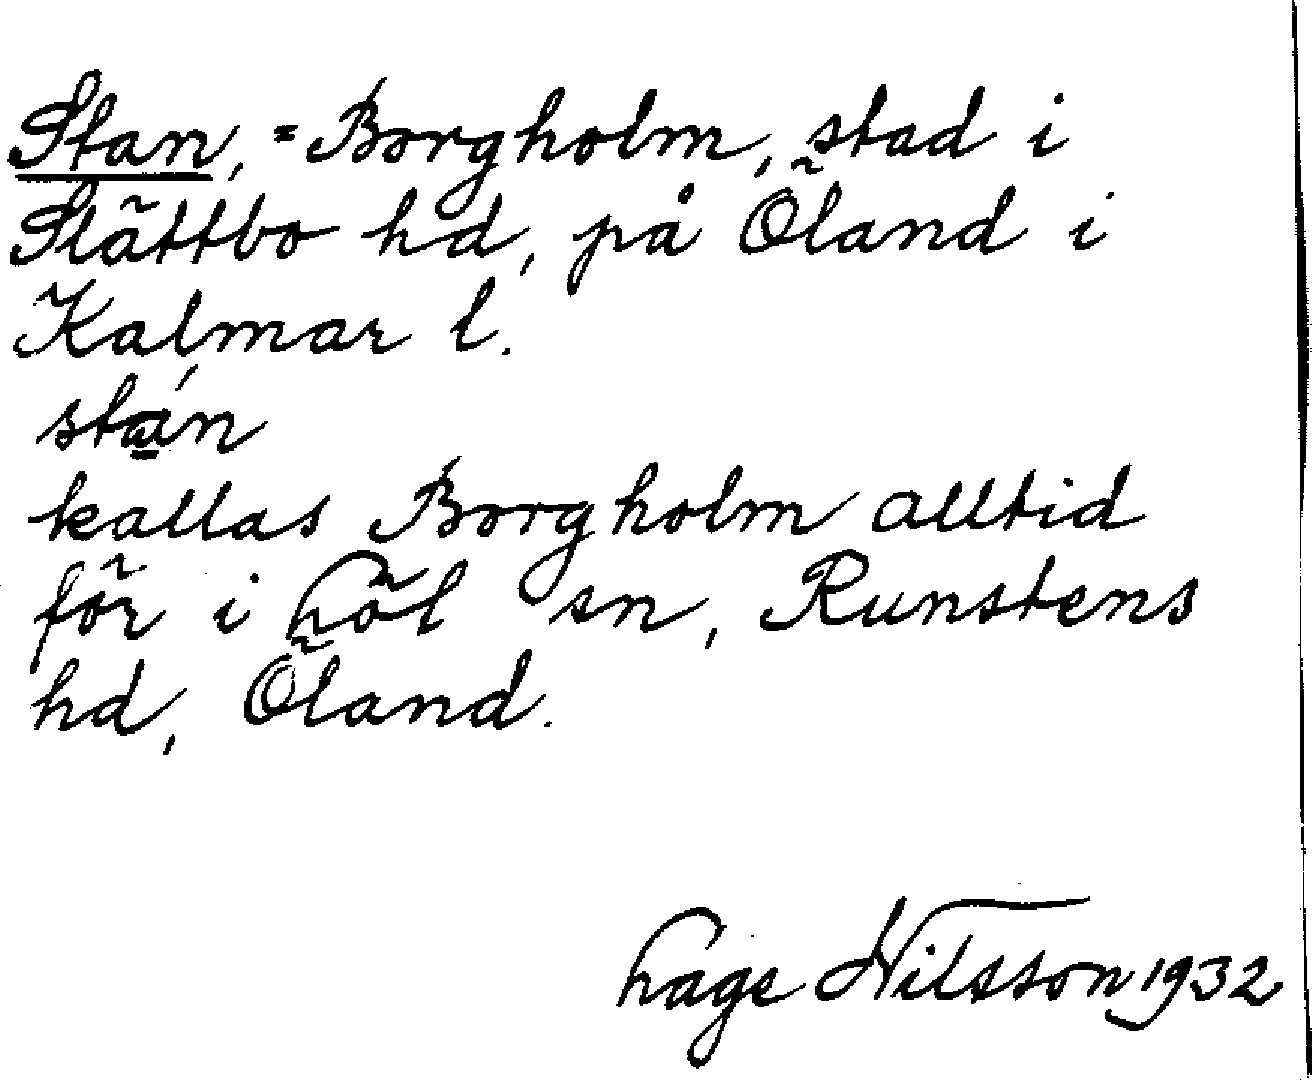 Stan, = Borgholm, stad i
Slättbo hd, på Öland i
Kalmar l.
stán
kallas Borgholm alltid
för i sn, Runstens
hd, Öland.
Hage Nilsson 1932